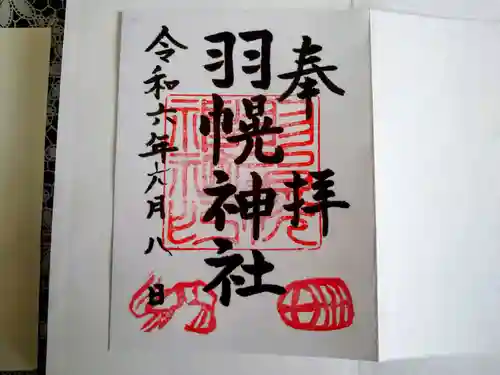 奉拝
羽幌神社
令和六年六月八日